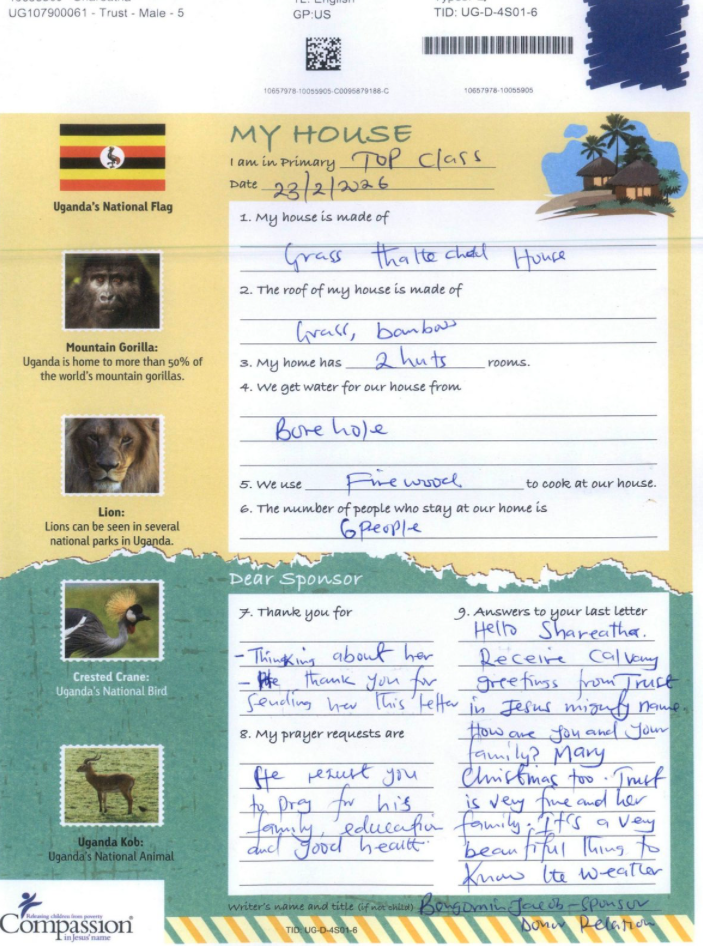 UG107900061 - Trust - Male - 5
GP:US
TID: UG-D-4S01-6
10657978-10055905-C0095879188-C
10657978-10055905
MY HOUSE
I am in Primary TOP Class
Date 23/2/2026
Uganda's National Flag
1. My house is made of
Grass thaltechell House
2. The roof of my house is made of
Grass, bamboo
3. My home has 2 huts rooms.
4. We get water for our house from
Bore hole
5. We use Fire wood to cook at our house.
6. The number of people who stay at our home is
6 people
Mountain Gorilla:
Uganda is home to more than 50% of
the world's mountain gorillas.
Lion:
Lions can be seen in several
national parks in Uganda.
Crested Crane:
Uganda's National Bird
Uganda Kob:
Uganda's National Animal
Dear Sponsor
7. Thank you for
- Thinking about her
- He thank you for
Sending her this letter
8. My prayer requests are
He request you
to pray for his
family, education
and good health.
9. Answers to your last letter
Hello Shareatha.
Receive Calvary
greetings from Trust
in Jesus mighty name.
How are you and your
family? Mary
Christmas too. Trust
is very fine and her
family. It's a very
beautiful thing to
Know the weather
Writer's name and title (if not child) Jacob - Sponsor
Donor Relation
Releasing children from poverty
Compassion
in Jesus' name
TID: UG-D-4S01-6